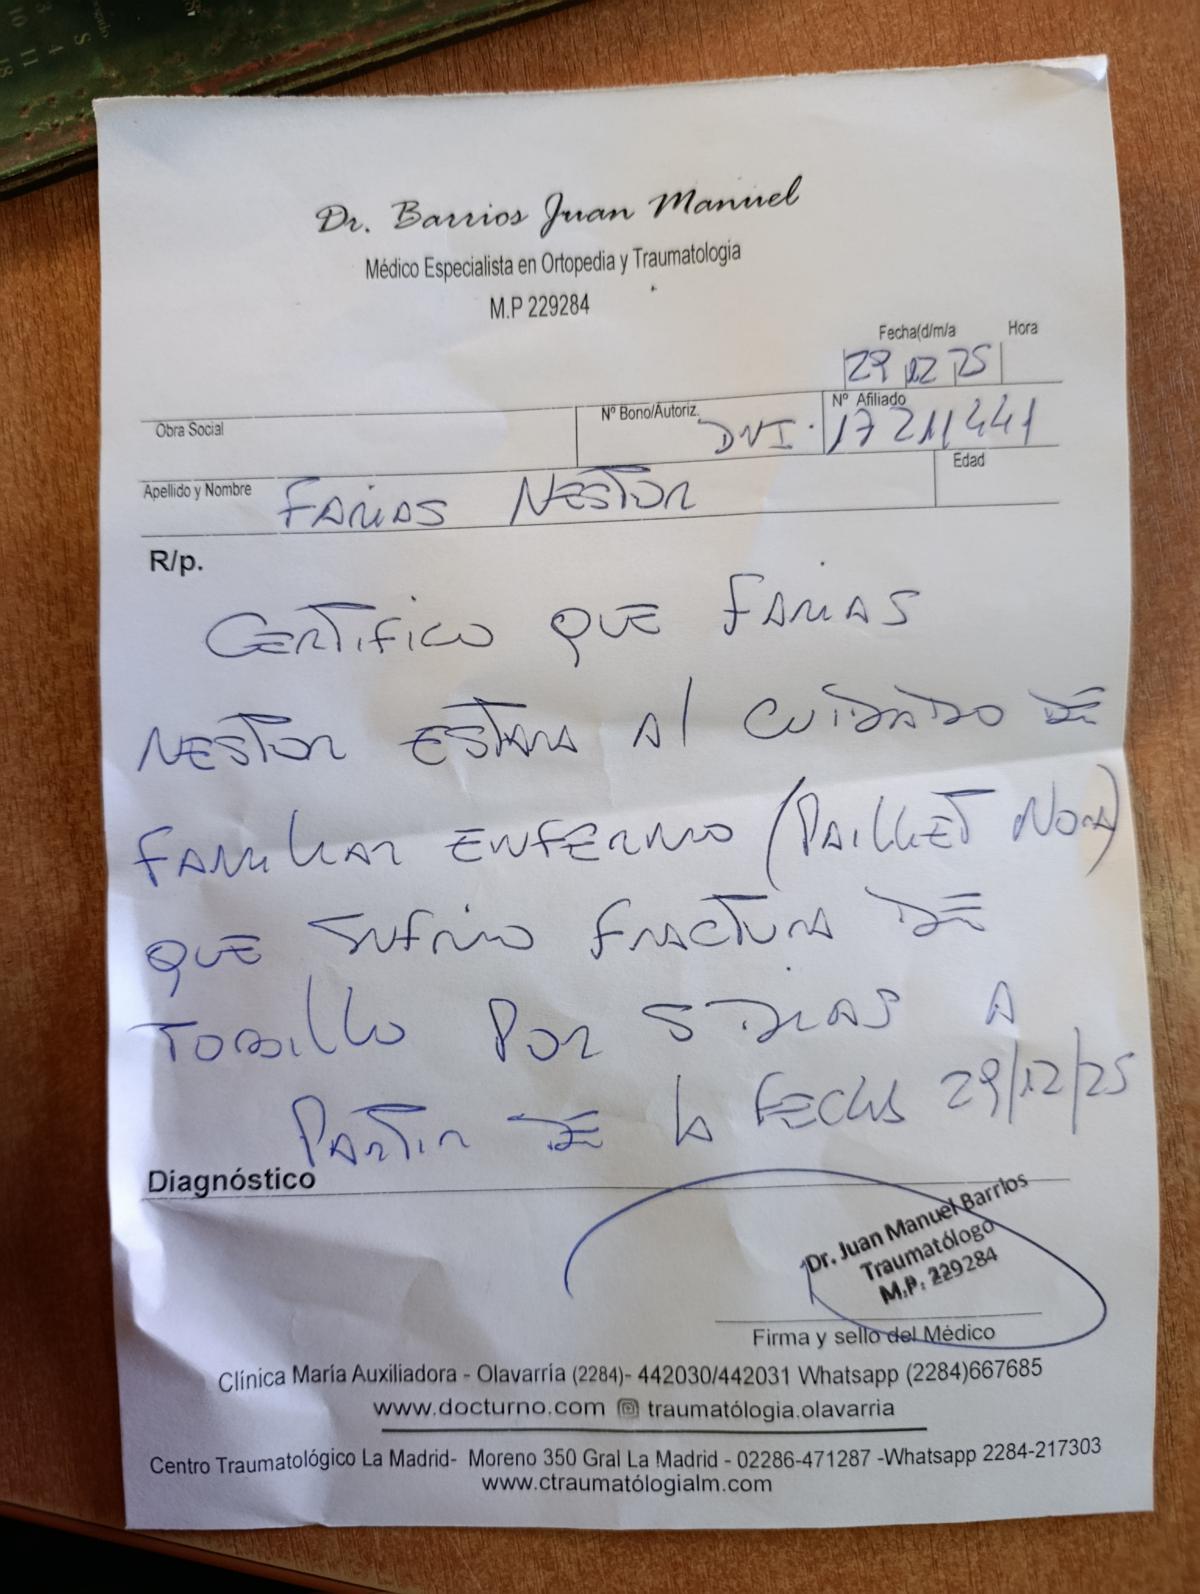 Dr. Barrios Juan Manuel
Médico Especialista en Ortopedia y Traumatologia
M.P 229284
Fecha(d/m/a Hora
29 12 25
Obra Social Nº Bono/Autoriz. DNI. Nº Afiliado 17211441
Apellido y Nombre FARIAS NESTOR Edad
R/p.
CERTIFICO QUE FARIAS
NESTOR ESTARA Al CUIDADO DE
FAMILIAR ENFERMO (PAILLET NORA)
QUE SUFRIO FRACTURA DE
TOBILLO POR 5 DIAS A
PARTIR DE LA FECHA 29/12/25
Diagnóstico
Dr. Juan Manuel Barrios
Traumatólogo
M.P. 229284
Firma y sello del Médico
Clínica María Auxiliadora - Olavarría (2284)- 442030/442031 Whatsapp (2284)667685
www.docturno.com traumatólogia.olavarria
Centro Traumatológico La Madrid- Moreno 350 Gral La Madrid - 02286-471287 -Whatsapp 2284-217303
www.ctraumatólogialm.com